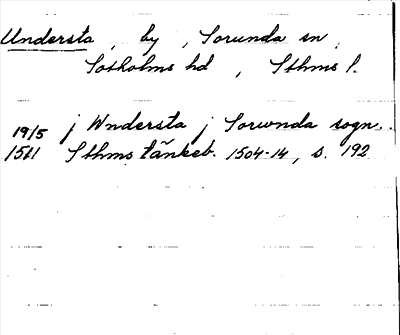 Understa, by, Sorunda sn,
Sotholms hd, Sthms l.
19/5 j Wndersta j Sorwnda sogn.
1511 Sthms tänkeb. 1504-14, s. 192